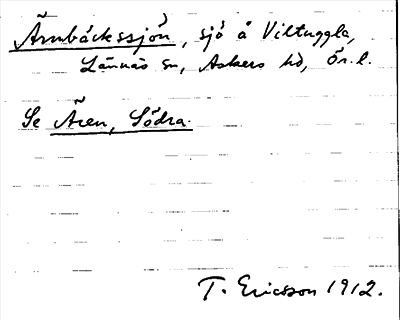 Ärnbäckssjön, sjö å Viltuggla,
Lännäs sn, Askers hd, Ör. l.
Se Ären, Södra.
T. Ericsson 1912.